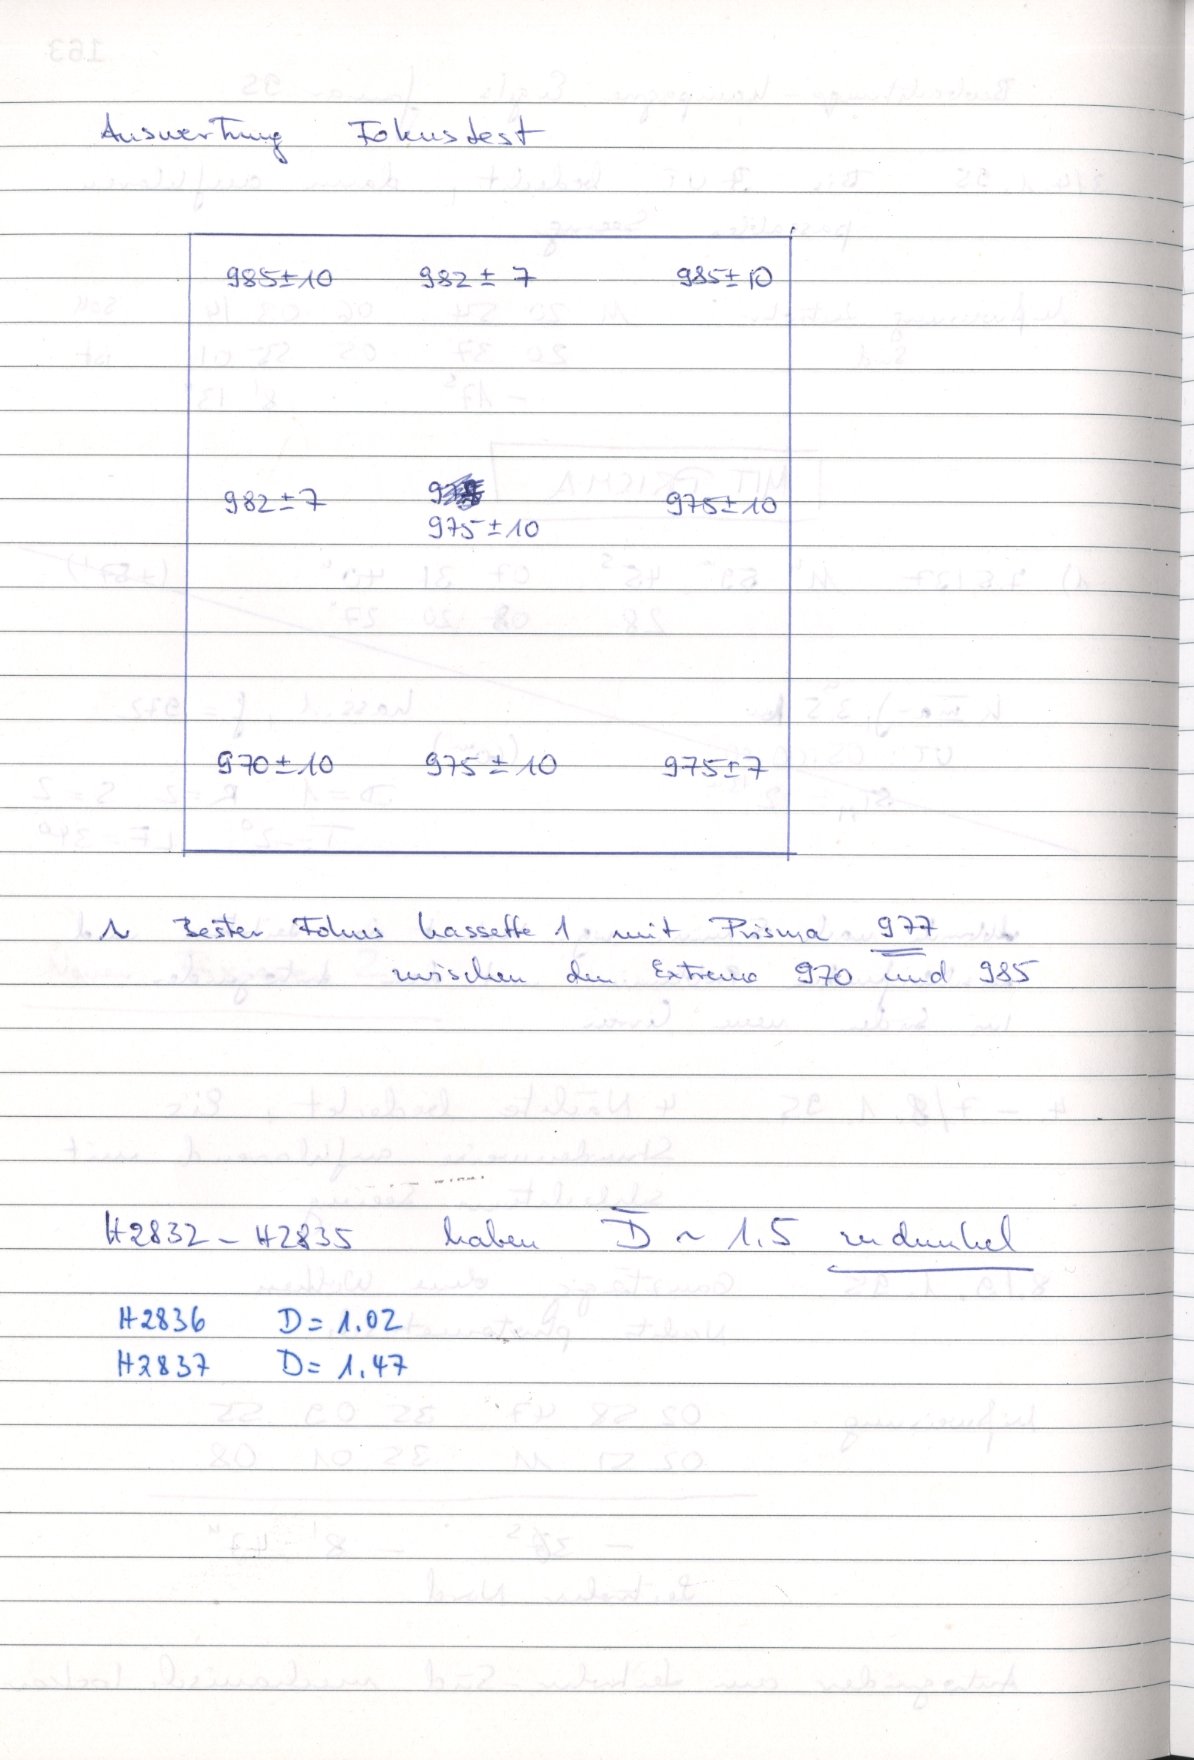 Auswertung Fokustest
985±10 982±7 985±10
982±7 975±10
975±10
970±10 975±10 975±7
~ Bester Fokus Kassette 1 mit Prisma 977
zwischen den Extrema 970 und 985
H2832 - H2835 haben D̅ ~ 1.5 zu dunkel
H2836 D = 1.02
H2837 D = 1.47